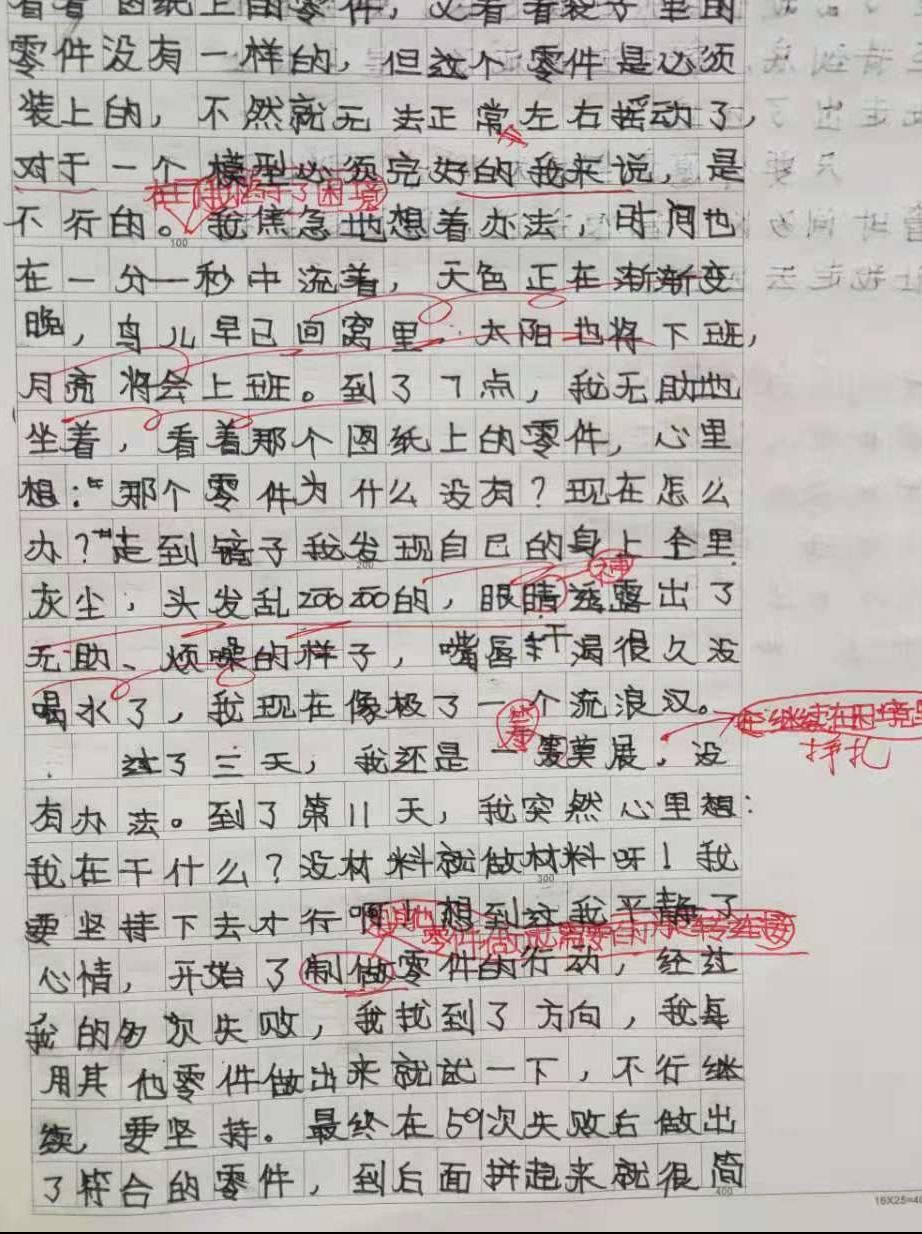 看着图纸上的零件，又看看袋子里的
零件没有一样的，但这个零件是必须
装上的，不然就无法正常左右摇动了，
对于一个模型必须完好的我来说，是
在同
了困境
不行的。我焦急地想着办法，时间也
100
在一分一秒中流着，天色正在渐渐变
晚，鸟儿早已回窝里。太阳也将下班，
月亮将会上班。到了7点，我无助地
坐着，看着那个图纸上的零件，心里
想：“那个零件为什么没有？现在怎么
办？”走到镜子我发现自己的身上全里
200
神
灰尘，头发乱200200的，眼睛透露出了
无助、烦噪的样子，嘴唇干渴很久没
喝水了，我现在像极了一个流浪汉。
筹
继续在困境里
挣扎
过了三天，我还是一展莫展，没
有办法。到了第11天，我突然心里想：
我在干什么？没材料就做材料呀！我
300
要坚持下去才行啊！想到这我平静了
零件做成需要的
心情，开始了制做零件的行动，经过
我的多次失败，我找到了方向，我每
用其他零件做出来就试一下，不行继
续，要坚持。最终在59次失败后做出
了符合的零件，到后面拼起来就很简
400
16X25=40